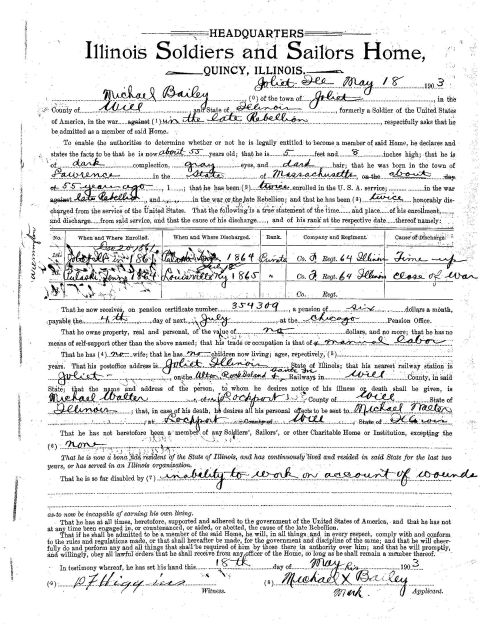 HEADQUARTERS
Illinois Soldiers and Sailors Home,
QUINCY, ILLINOIS,
Joliet Ill May 18 1903
Michael Bailey (0) of the town of Joliet, in the
County of Will and State of Illinois, formerly a Soldier of the United States
of America, in the war against (1) in the late Rebellion respectfully asks that he
be admitted as a member of said Home.
To enable the authorities to determine whether or not he is legally entitled to become a member of said Home, he declares and
states the facts to be that he is now about 55 years old; that he is 5 feet and 8 inches high; that he is
of dark complection, gray eyes, and dark hair; that he was born in the town of
Lawrence in the State of Massachusetts on the about day
of 55 years ago, 1 ; that he has been (2) twice enrolled in the U. S. A. service; in the war
against late Rebellion and, in the war or the late Rebellion; and that he has been (3) twice honorably dis-
charged from the service of the United States. That the following is a true statement of the time and place, of his enrollment,
and discharge, from said service, and that the cause of his discharge, and of his rank at the respective date thereof namely:
No. When and Where Enrolled. When and Where Discharged. Rank. Company and Regiment. Cause of Discharge.
Dec 20 1861
1st Joliet Ill in 1861 Pulaski 1864 Private Co. F Regt. 64 Illinois Time up
Pulaski Louisville Ky 1865 " Co. F Regt. 64 Illinois close of war
Co. Regt.
That he now receives, on pension certificate number 354309, a pension of six dollars a month,
payable the 4th day of next July at the Chicago Pension Office.
That he owns property, real and personal, of the value of no dollars, and no more; that he has no
means of self-support other than the above named; that his trade or occupation is that of a manual labor
That he has (4) no wife; that he has no children now living; ages, repectively, (5)
years. That his postoffice address is Joliet Illinois State of Illinois; that his nearest railway station is
Joliet, on the Alton Rock Island & Santa Fe Railways in Will County, in said
State; that the name and address of the person, to whom he desires notice of his illness or death shall be given, is
Michael Walter, of Lockport County of Will State of
Illinois; that, in case of his death, he desires all his personal effects to be sent to Michael Walter
at Lockport County of Will State of Illinois
That he has not heretofore been a member of any Soldiers', Sailors', or other Charitable Home or Institution, excepting the
(6) none
That he is now a bona fide resident of the State of Illinois, and has continuously lived and resided in said State for the last two
years, or has served in an Illinois organization.
That he is so far disabled by (7) inability to work on account of wounds
as to now be incapable of earning his own living.
That he has at all times, heretofore, supported and adhered to the government of the United States of America, and that he has not
at any time been engaged in, or countenanced, or aided, or abetted, the cause of the late Rebellion.
That if he shall be admitted to be a member of the said Home, he will, in and in every respect, comply with and conform
to the rules and regulations made, or that shall hereafter be made, for the government and discipline of the same; and that he will cheer-
fully do and perform any and all things that shall be required of him by those there in authority over him; and that he will promptly,
and willingly, obey all lawful orders that he shall receive from any officer of the Home, so long as he shall remain a member thereof.
In testimony whereof, he has set his hand this 18th day of May 1903
his
(9) D F Higgins (8) Michael X Bailey
Witness. mark Applicant.